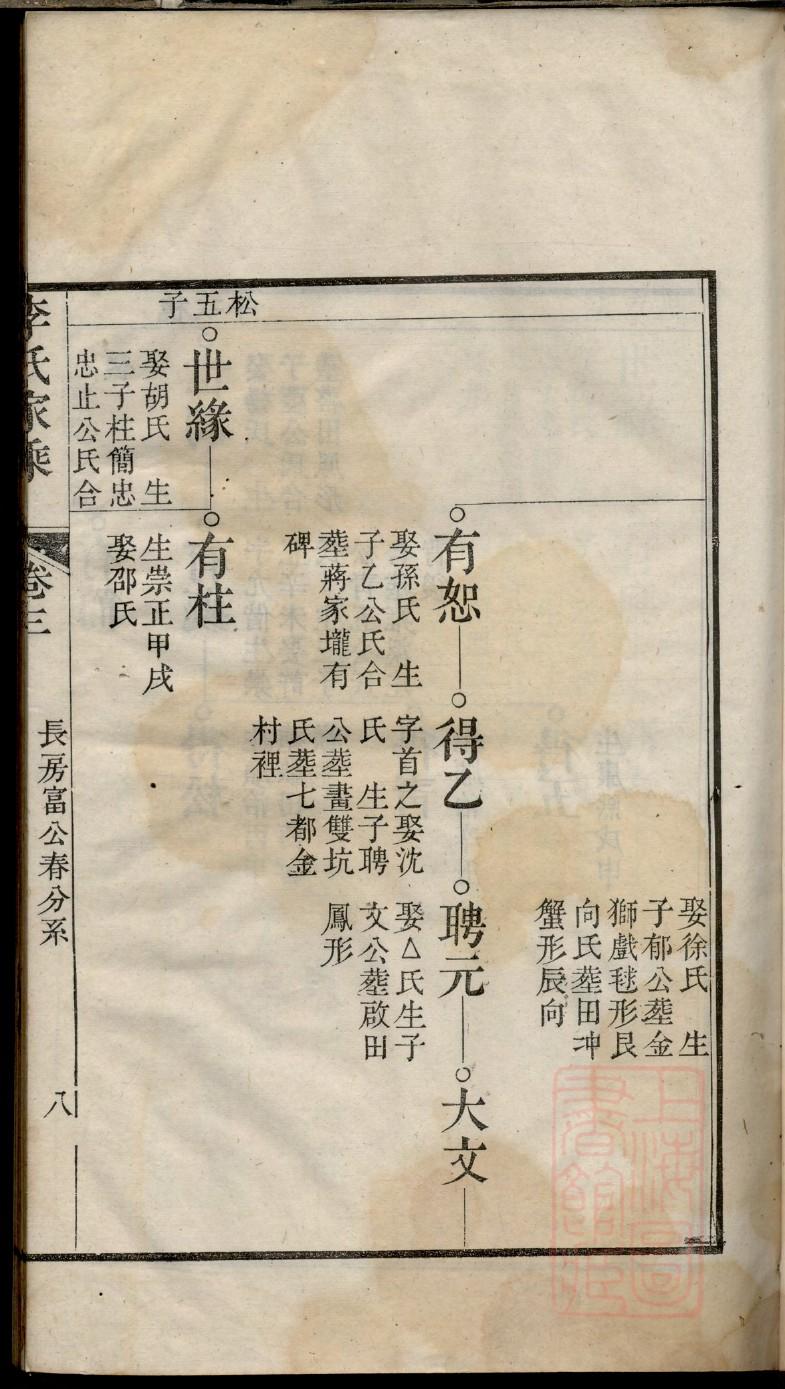 娶徐氏　生
子郁公塟金
獅戲毬形艮
向氏塟田冲
蟹形辰向
有恕
娶孫氏　生
子乙公氏合
塟蔣家壠有
碑
得乙
字首之娶沈
氏　生子聘
公塟畫雙坑
氏塟七都金
村裡
聘元
娶△氏生子
文公塟啟田
鳳形
大文
松五子
世緣
娶胡氏　生
三子柱簡忠
忠止公氏合
有柱
生崇正甲戌
娶邵氏
李氏家乘
卷三
長房富公春分系
八
上海圖書館藏